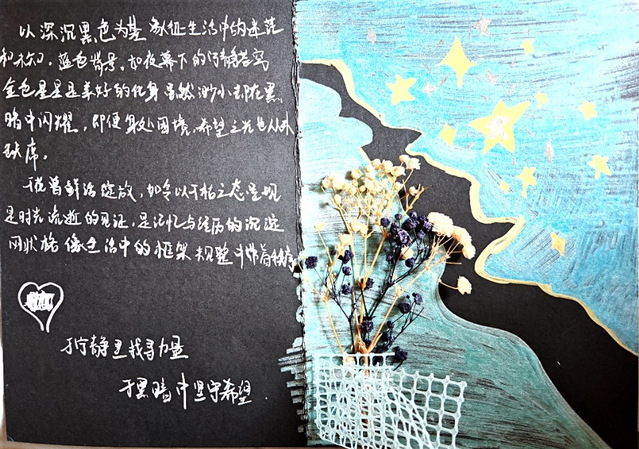 以深沉黑色为基 象征生活中的迷茫
和未知. 蓝色背景, 如夜幕下的河静谧
金色星星是美好的化身 虽然渺小却在黑
暗中闪耀, 即便身处困境, 希望之光也从未
缺席.
干花曾鲜活绽放, 如今以干枯之态呈现
是时光流逝的见证, 是记忆与经历的沉淀
网状格像生活中的框架 规整 着秩序
于宁静里找寻力量
于黑暗中坚守希望.